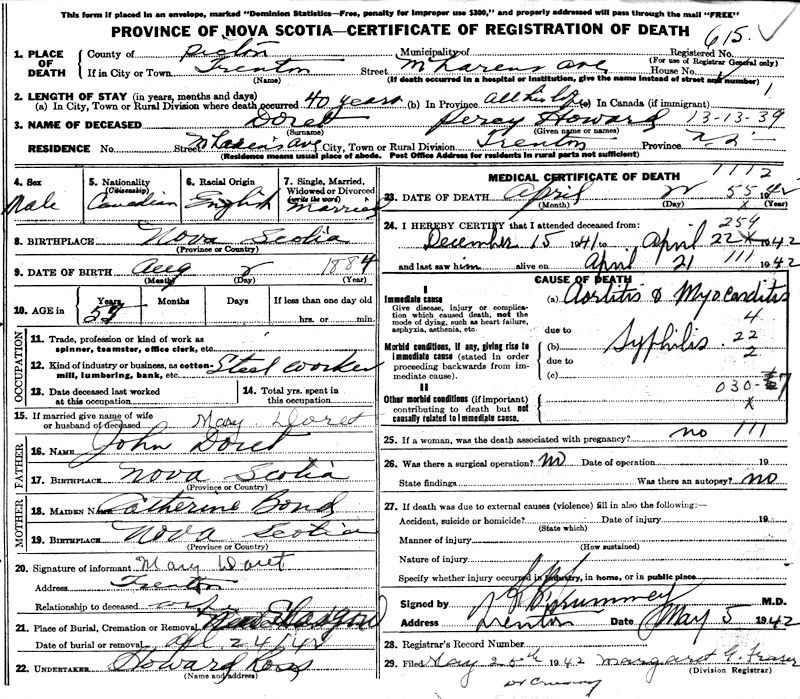 This form if placed in an envelope, marked "Dominion Statistics—Free, penalty for improper use $300," and properly addressed will pass through the mail "FREE"
PROVINCE OF NOVA SCOTIA—CERTIFICATE OF REGISTRATION OF DEATH
615
1. PLACE OF DEATH
County of Pictou Municipality of Registered No.
(For use of Registrar General only)
If in City or Town Trenton Street McLarens Ave House No.
(Name) (If death occurred in a hospital or institution, give the name instead of street and number)
2. LENGTH OF STAY (in years, months and days)
(a) In City, Town or Rural Division where death occurred 40 years (b) In Province all his life (c) In Canada (if immigrant)
3. NAME OF DECEASED Doret Percy Howard 13-13-39
(Surname) (Given name or names)
RESIDENCE No. McLaren's Ave City, Town or Rural Division Trenton Province N.S.
(Residence means usual place of abode. Post Office Address for residents in rural parts not sufficient)
4. Sex
Male
5. Nationality (Citizenship)
Canadian
6. Racial Origin
English
7. Single, Married, Widowed or Divorced (write the word)
Married
8. BIRTHPLACE Nova Scotia
(Province or Country)
9. DATE OF BIRTH Aug 2 1884
(Month) (Day) (Year)
10. AGE in Years Months Days If less than one day old
57 hrs. or min.
OCCUPATION
11. Trade, profession or kind of work as spinner, teamster, office clerk, etc.
12. Kind of industry or business, as cotton-mill, lumbering, bank, etc. Steel worker
13. Date deceased last worked at this occupation
14. Total yrs. spent in this occupation
15. If married give name of wife or husband of deceased Mary Doret
FATHER
16. NAME John Doret
17. BIRTHPLACE Nova Scotia
(Province or Country)
MOTHER
18. MAIDEN NAME Catherine Bond
19. BIRTHPLACE Nova Scotia
(Province or Country)
20. Signature of informant Mary Doret
Address Trenton
Relationship to deceased
21. Place of Burial, Cremation or Removal New Glasgow
Date of burial or removal Apl 24/42
22. UNDERTAKER Howard Ross
(Name and address)
MEDICAL CERTIFICATE OF DEATH 1112
23. DATE OF DEATH April 22 55 1942
(Month) (Day) (Year)
24. I HEREBY CERTIFY that I attended deceased from: 259
December 15 1941 to April 22 1942
and last saw him alive on April 21 111 1942
CAUSE OF DEATH
I
Immediate cause
Give disease, injury or complication which caused death, not the mode of dying, such as heart failure, asphyxia, asthenia, etc.
(a) Aortitis & Myocarditis
4
due to
Morbid conditions, if any, giving rise to immediate cause (stated in order proceeding backwards from immediate cause).
(b) Syphilis. 22
due to 2
(c)
030-
II
Other morbid conditions (if important) contributing to death but not causally related to immediate cause.
25. If a woman, was the death associated with pregnancy? no 111
26. Was there a surgical operation? No Date of operation 19
State findings Was there an autopsy? No
27. If death was due to external causes (violence) fill in also the following:—
Accident, suicide or homicide? Date of injury 19
(State which)
Manner of injury
(How sustained)
Nature of injury
Specify whether injury occurred in industry, in home, or in public place
Signed by M.D.
Address Trenton Date May 5 1942
28. Registrar's Record Number
29. Filed May 25th 1942 Margaret G. Fraser
(Division Registrar)